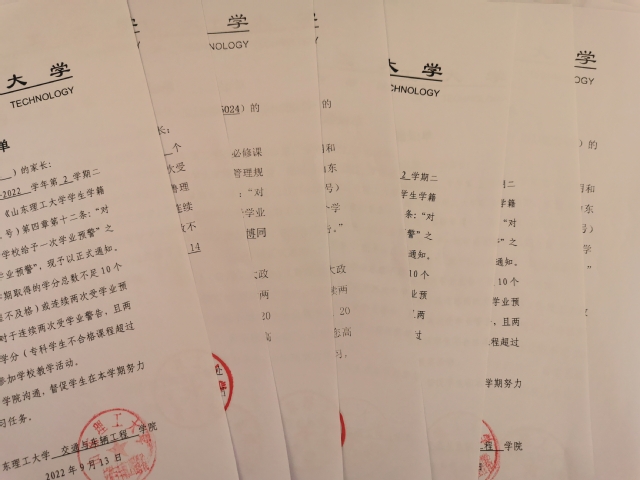 大学
TECHNOLOGY
单
）的家长：
-2022 学年第 2 学期二
《山东理工大学学生学籍
号）第四章第十二条：“对
学校给予一次学业预警”之
学业预警”，现予以正式通知。
期取得的学分总数不足 10 个
不及格）或连续两次受学业预
对于连续两次受学业警告，且两
学分（专科学生不合格课程超过
参加学校教学活动。
学院沟通，督促学生在本学期努力
习任务。
东理工大学 交通与车辆工程 学院
2022 年 9 月 13 日
理工大
学
NOLOGY
长：
个
次受
管理
连续
数不
14
学
NOLOGY
6024）的
必修课
管理规
：“对
学业
博同
大政
两
20
高
学
的
和
东
号）
个学
。”
大政
续两
20
志高
习，
大学
TECHNOLOGY
2 学期二
学生学籍
条：“对
警”之
通知。
10 个
业预
且两
过
学期二
学籍
“对
”之
通知。
10 个
学业预
告，且两
程超过
学期努力
工程 学院
学
OGY
）的
和
东
号）
学
”